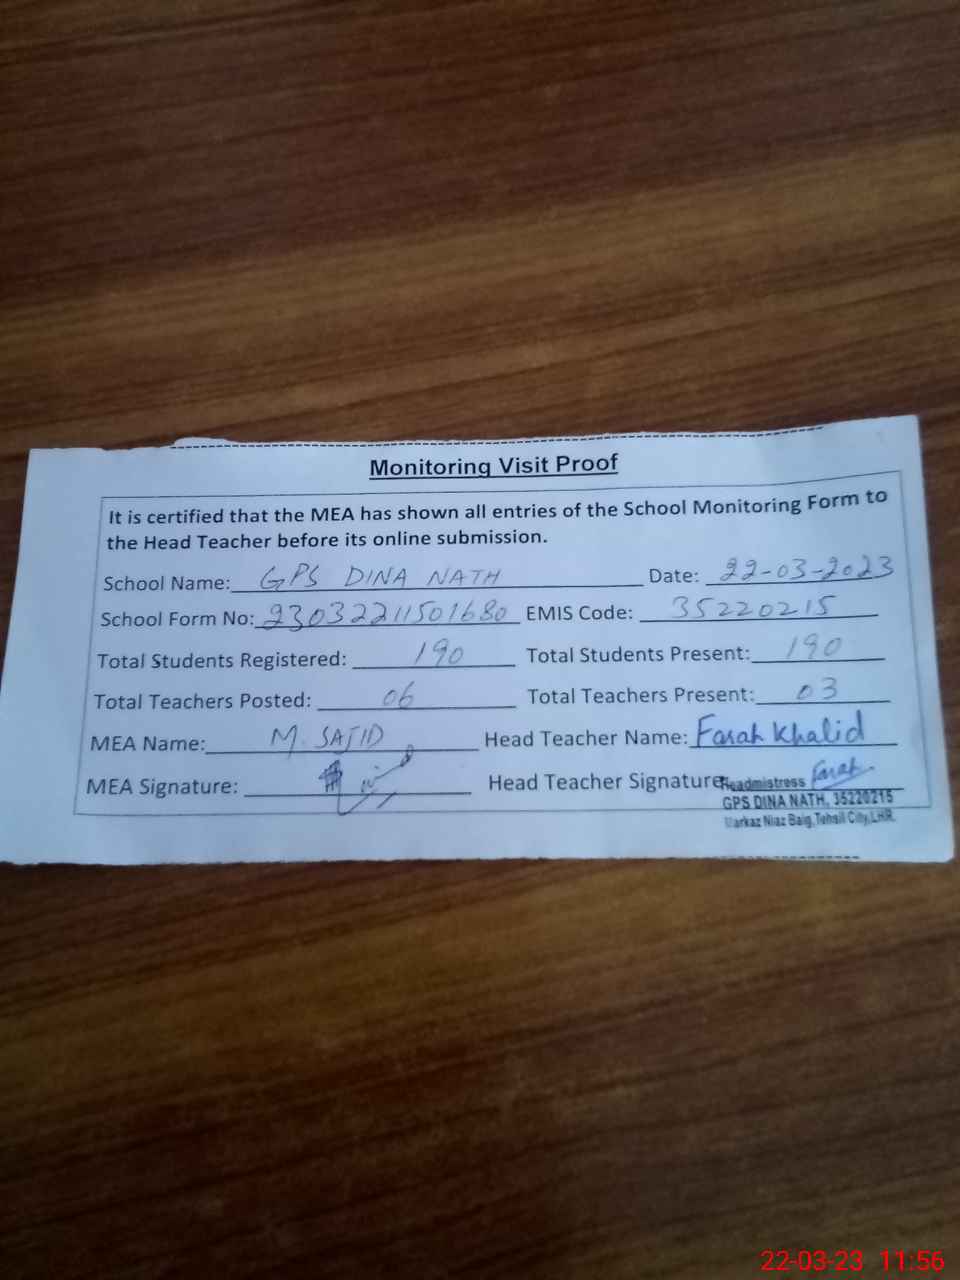 Monitoring Visit Proof
It is certified that the MEA has shown all entries of the School Monitoring Form to
the Head Teacher before its online submission.
School Name: GPS DINA NATH Date: 22-03-2023
School Form No: 23032211501680 EMIS Code: 35220215
Total Students Registered: 190 Total Students Present: 190
Total Teachers Posted: 06 Total Teachers Present: 03
MEA Name: M. SAJID Head Teacher Name: Farah Khalid
MEA Signature: Head Teacher Signature: Farah
Headmistress
GPS DINA NATH, 35220215
Markaz Niaz Baig, Tehsil City, LHR.
22-03-23 11:56